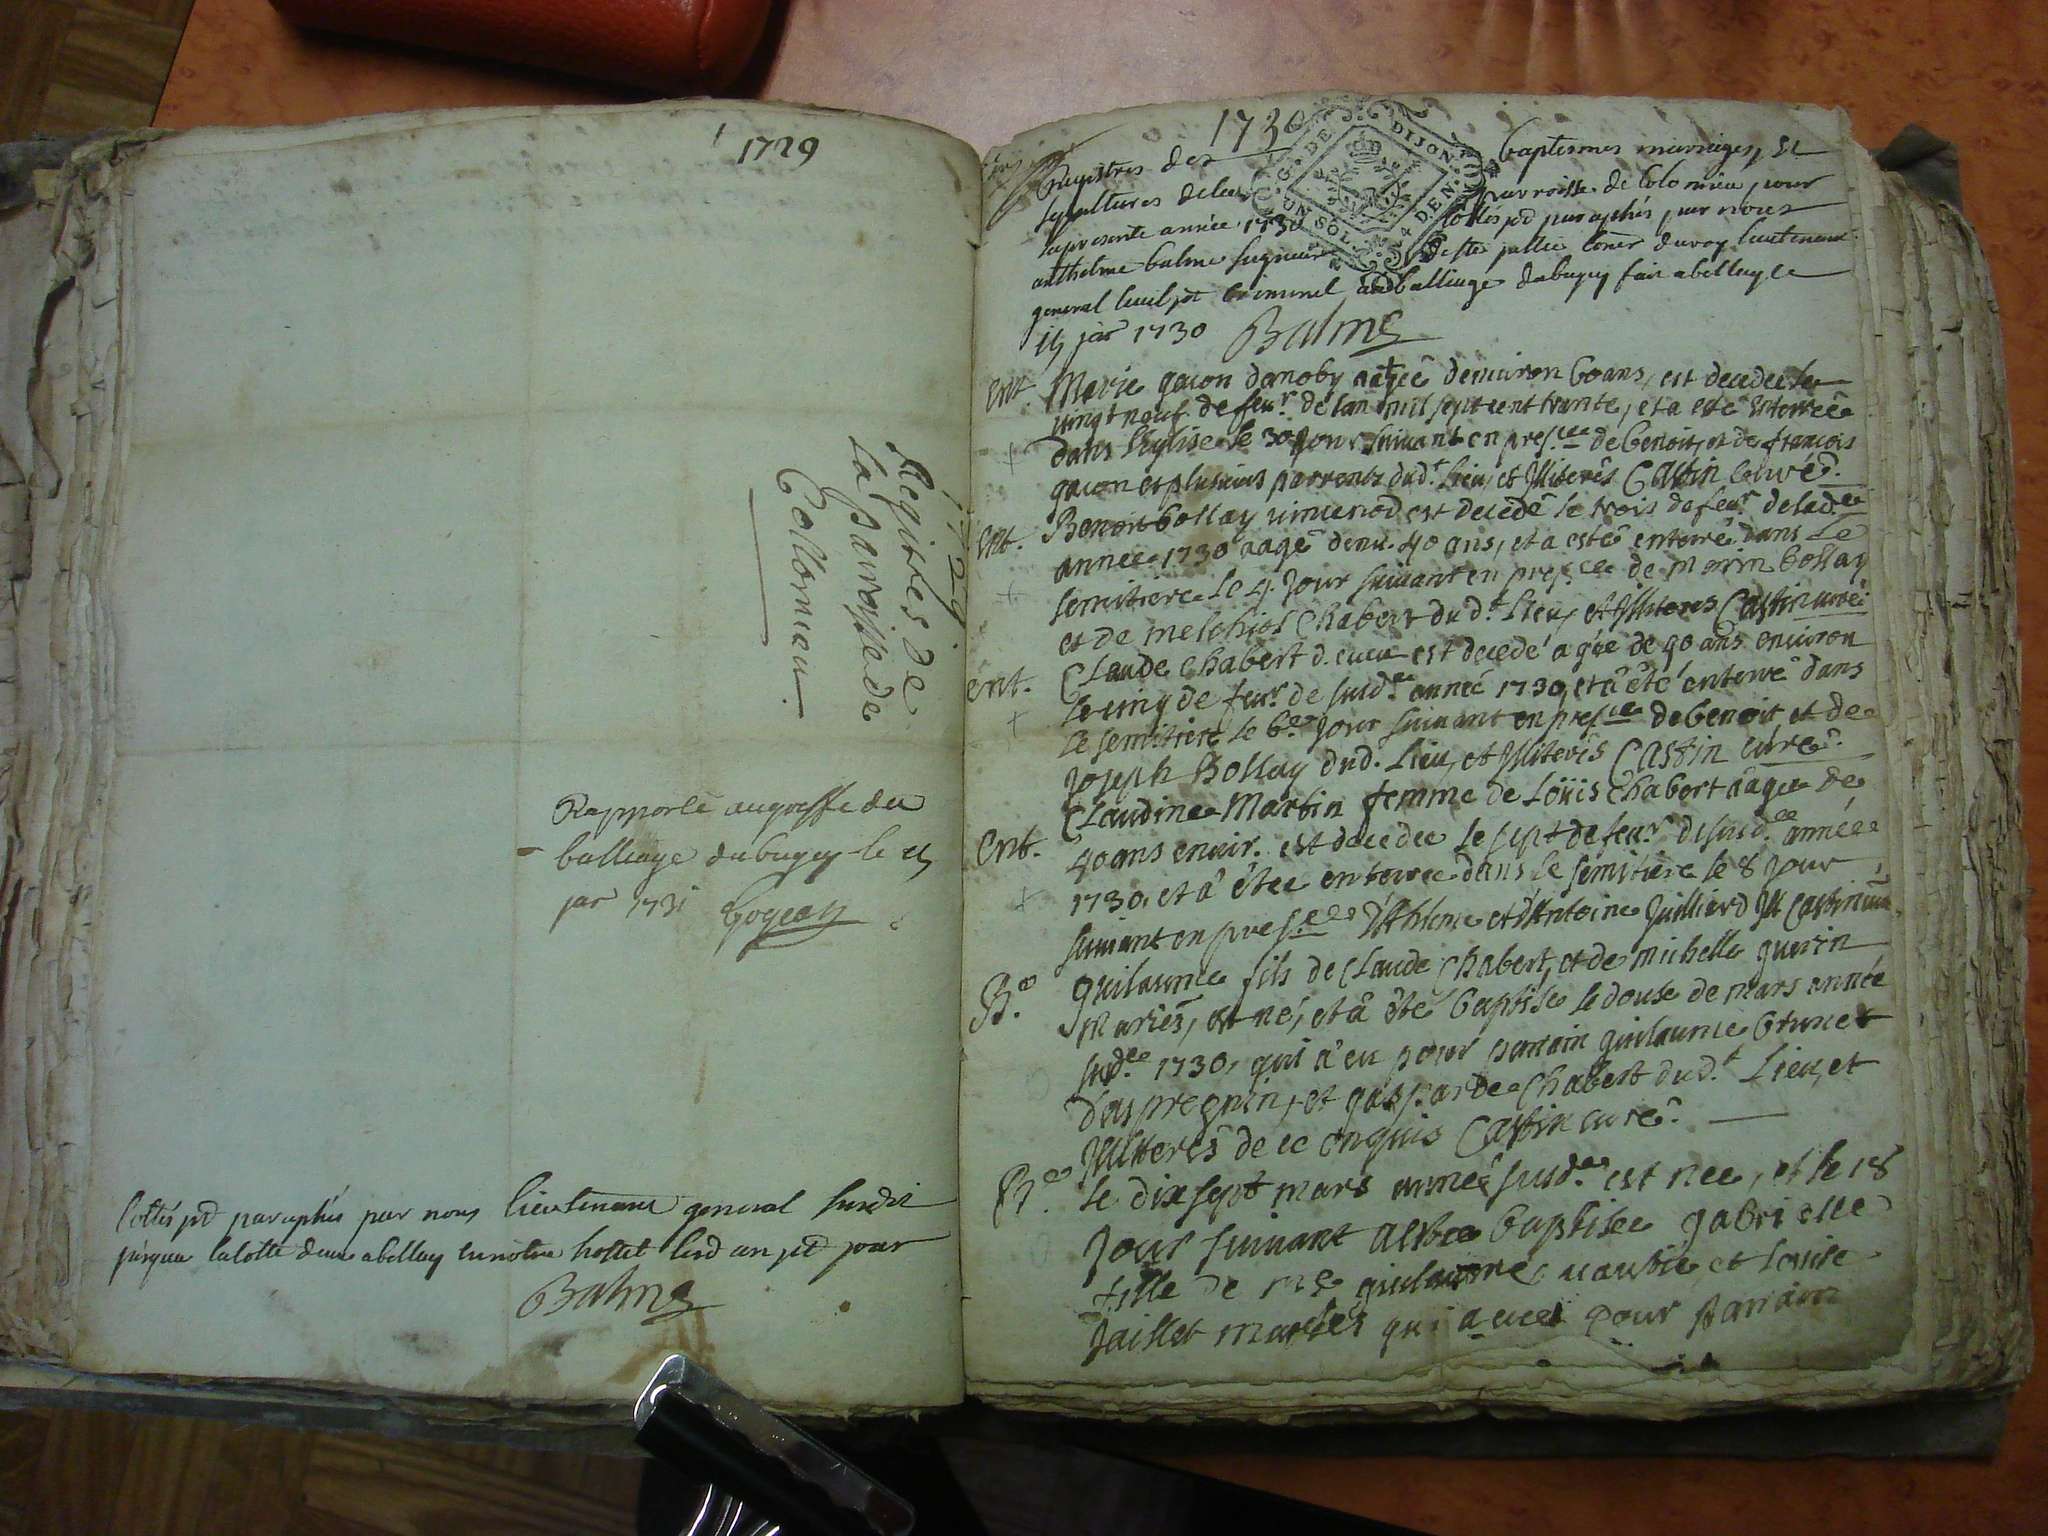 1729
1729
Regitres de
la parroisse de
Collomieu.
Rapporté au greffe du
balliage du bugey le
jar 1731
Cottés pd paraphés par nous lieutenant general susdit
jusques lacotte deux abelley en notre hostel led an pd jour
Balme
1730
G. DE DIJON
UN SOL. 4 DEN.
Registres des baptesmes mariages, Et
sepultures dela parroisse de Colomieu, pour
la presente année 1730 Cottés pd paraphés par nous
anthelme balme seigneur de Ste Jullie Coner du roy lieutenant
general civil pd Criminel au balliage du bugey fait a belley ce
jar 1730 Balme
ent. Marie gacon danoby aagée denuiron 60 ans, est decedee le
uingt neuf de feur. de lan mil sept cent trante, et a esté enterrée
dans l'Eglise le 30 jour suiuant en presce de benoit, et de françois
gacon et plusieurs parrents dud.t Lieu, et Jlliterés Castin Curé.
ent. Benoit bollay est decedé le trois de feur. de lad.ee
année 1730 aagé denu. 40 ans, et a esté enterré dans Le
semitiere le 4. Jour suiuant en presce de morin bollay
et de melchiol Chabert du d.t Lieu, et Jlliteres Castin curé.
ent. CLaude Chabert est decedé agée de 90 ans enuiron
le cinq de feur. de susd.ee année 1730, et â été enterré dans
le semitiere le 6.e Jour suiuant en presce de benoit et de
Joseph Bollay dud. Lieu, et Jlliterés Castin Curé.
ent. CLaudine Martin femme de Loüis Chabert aagée de
40 ans enuir. est decedee le sept de feur. de susd.ee année
1730, et â étée enterree dans le semitiere le 8 Jour
suiuant en presce d'Athleme et d'Antoine Juilliard Jll Castin
B.e guilaume fils de CLaude Chabert, et de michelle guerin
mariés, est né, et â été baptisé le douse de mars année
susd.ee 1730, qui â eu pour parrain guilaume brunet
das pregnin, et gasparde Chabert du d.t Lieu, et
Jlliterés de ce enquis Castin curé.
B.e Le dix sept mars année susd.ee est nee, et le 18
Jour suiuant baptisée gabrielle
fille de me guilaume et Louise
Jaillet mariés qui a eue pour parrain